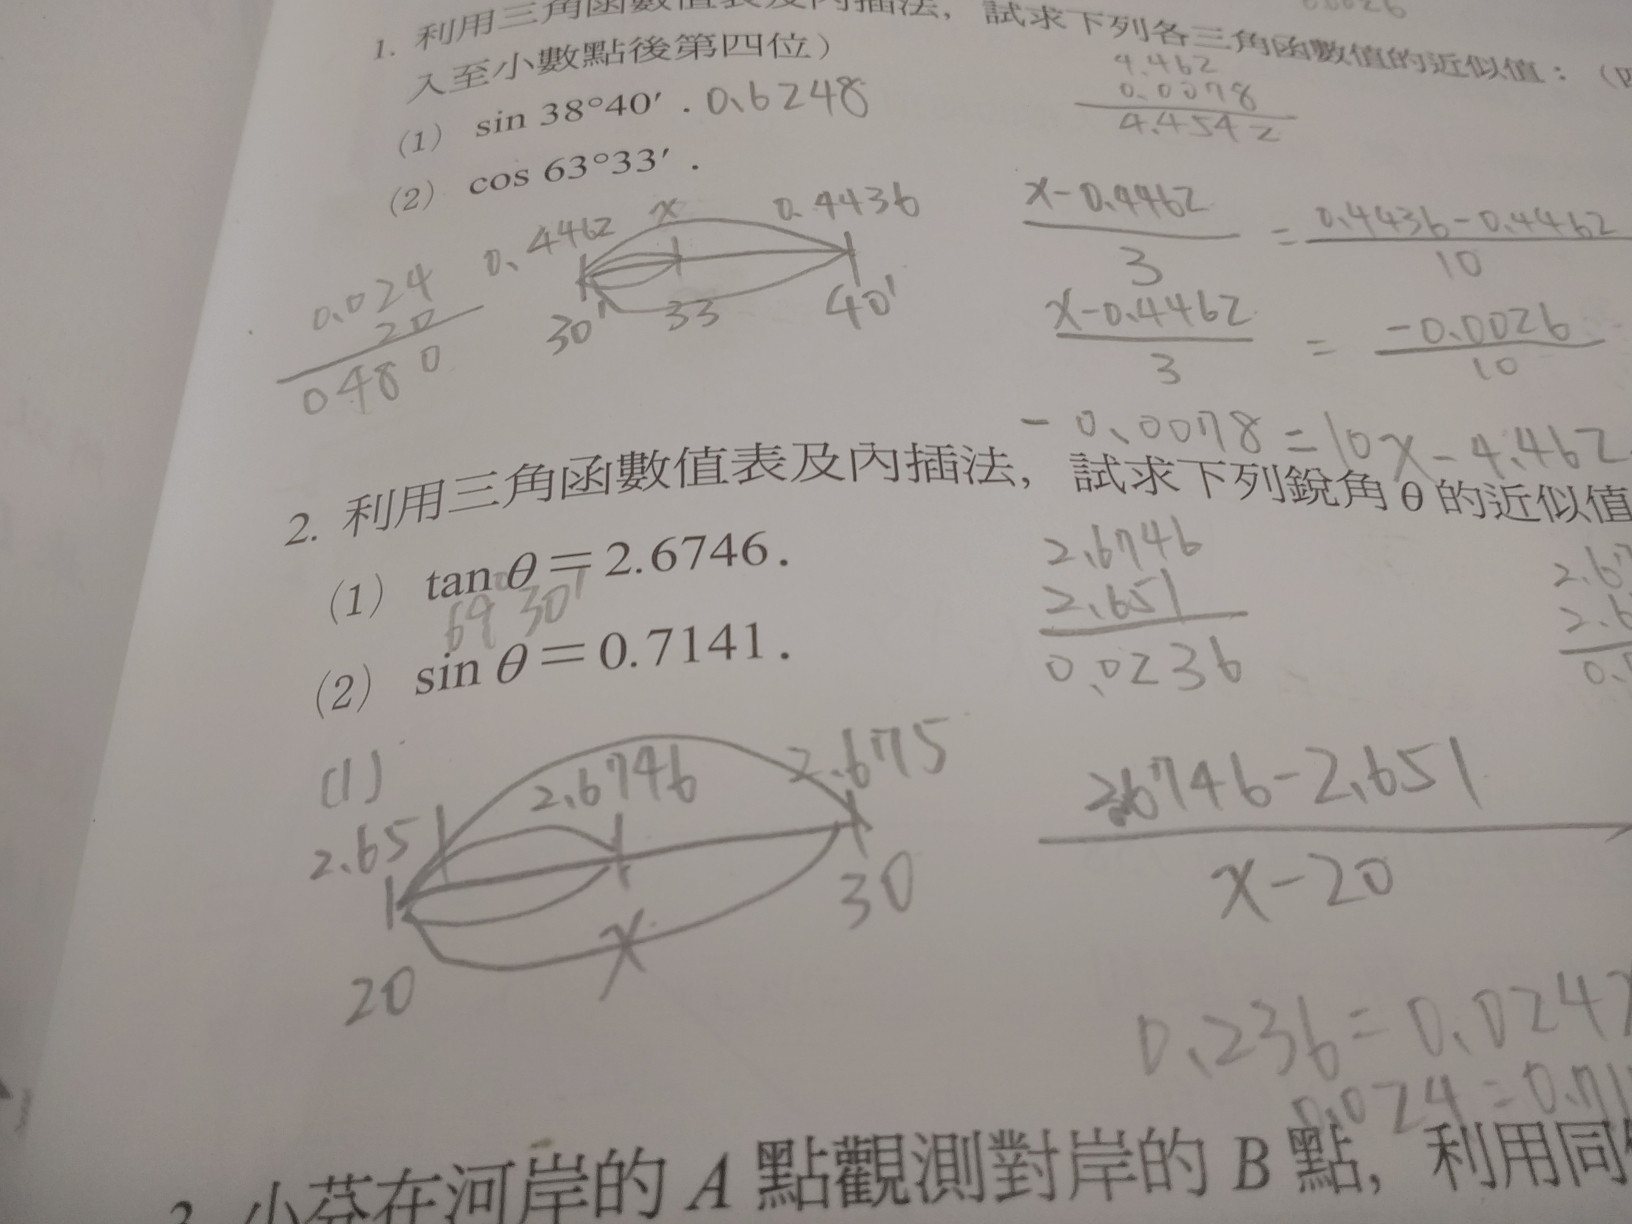 1. 利用三角函數值表及內插法，試求下列各三角函數值的近似值：（四
入至小數點後第四位）
(1) sin 38°40′. 0.6248
4.462
0.0078
4.4542
(2) cos 63°33′.
0.4462 x 0.4436
30′ 33 40′
0.024
20
0480
x-0.4462 / 3 = 0.4436-0.4462 / 10
x-0.4462 / 3 = -0.0026 / 10
-0.0078=10x-4.462
2. 利用三角函數值表及內插法，試求下列銳角 θ 的近似值
(1) tan θ＝2.6746.
69°30′
(2) sin θ＝0.7141.
2.6746
2.651
0.0236
(1)
2.651 2.6746 2.675
20 x 30
2.6746-2.651
x-20
0.236=0.024
0.024=0.71
3. 小芬在河岸的 A 點觀測對岸的 B 點，利用同